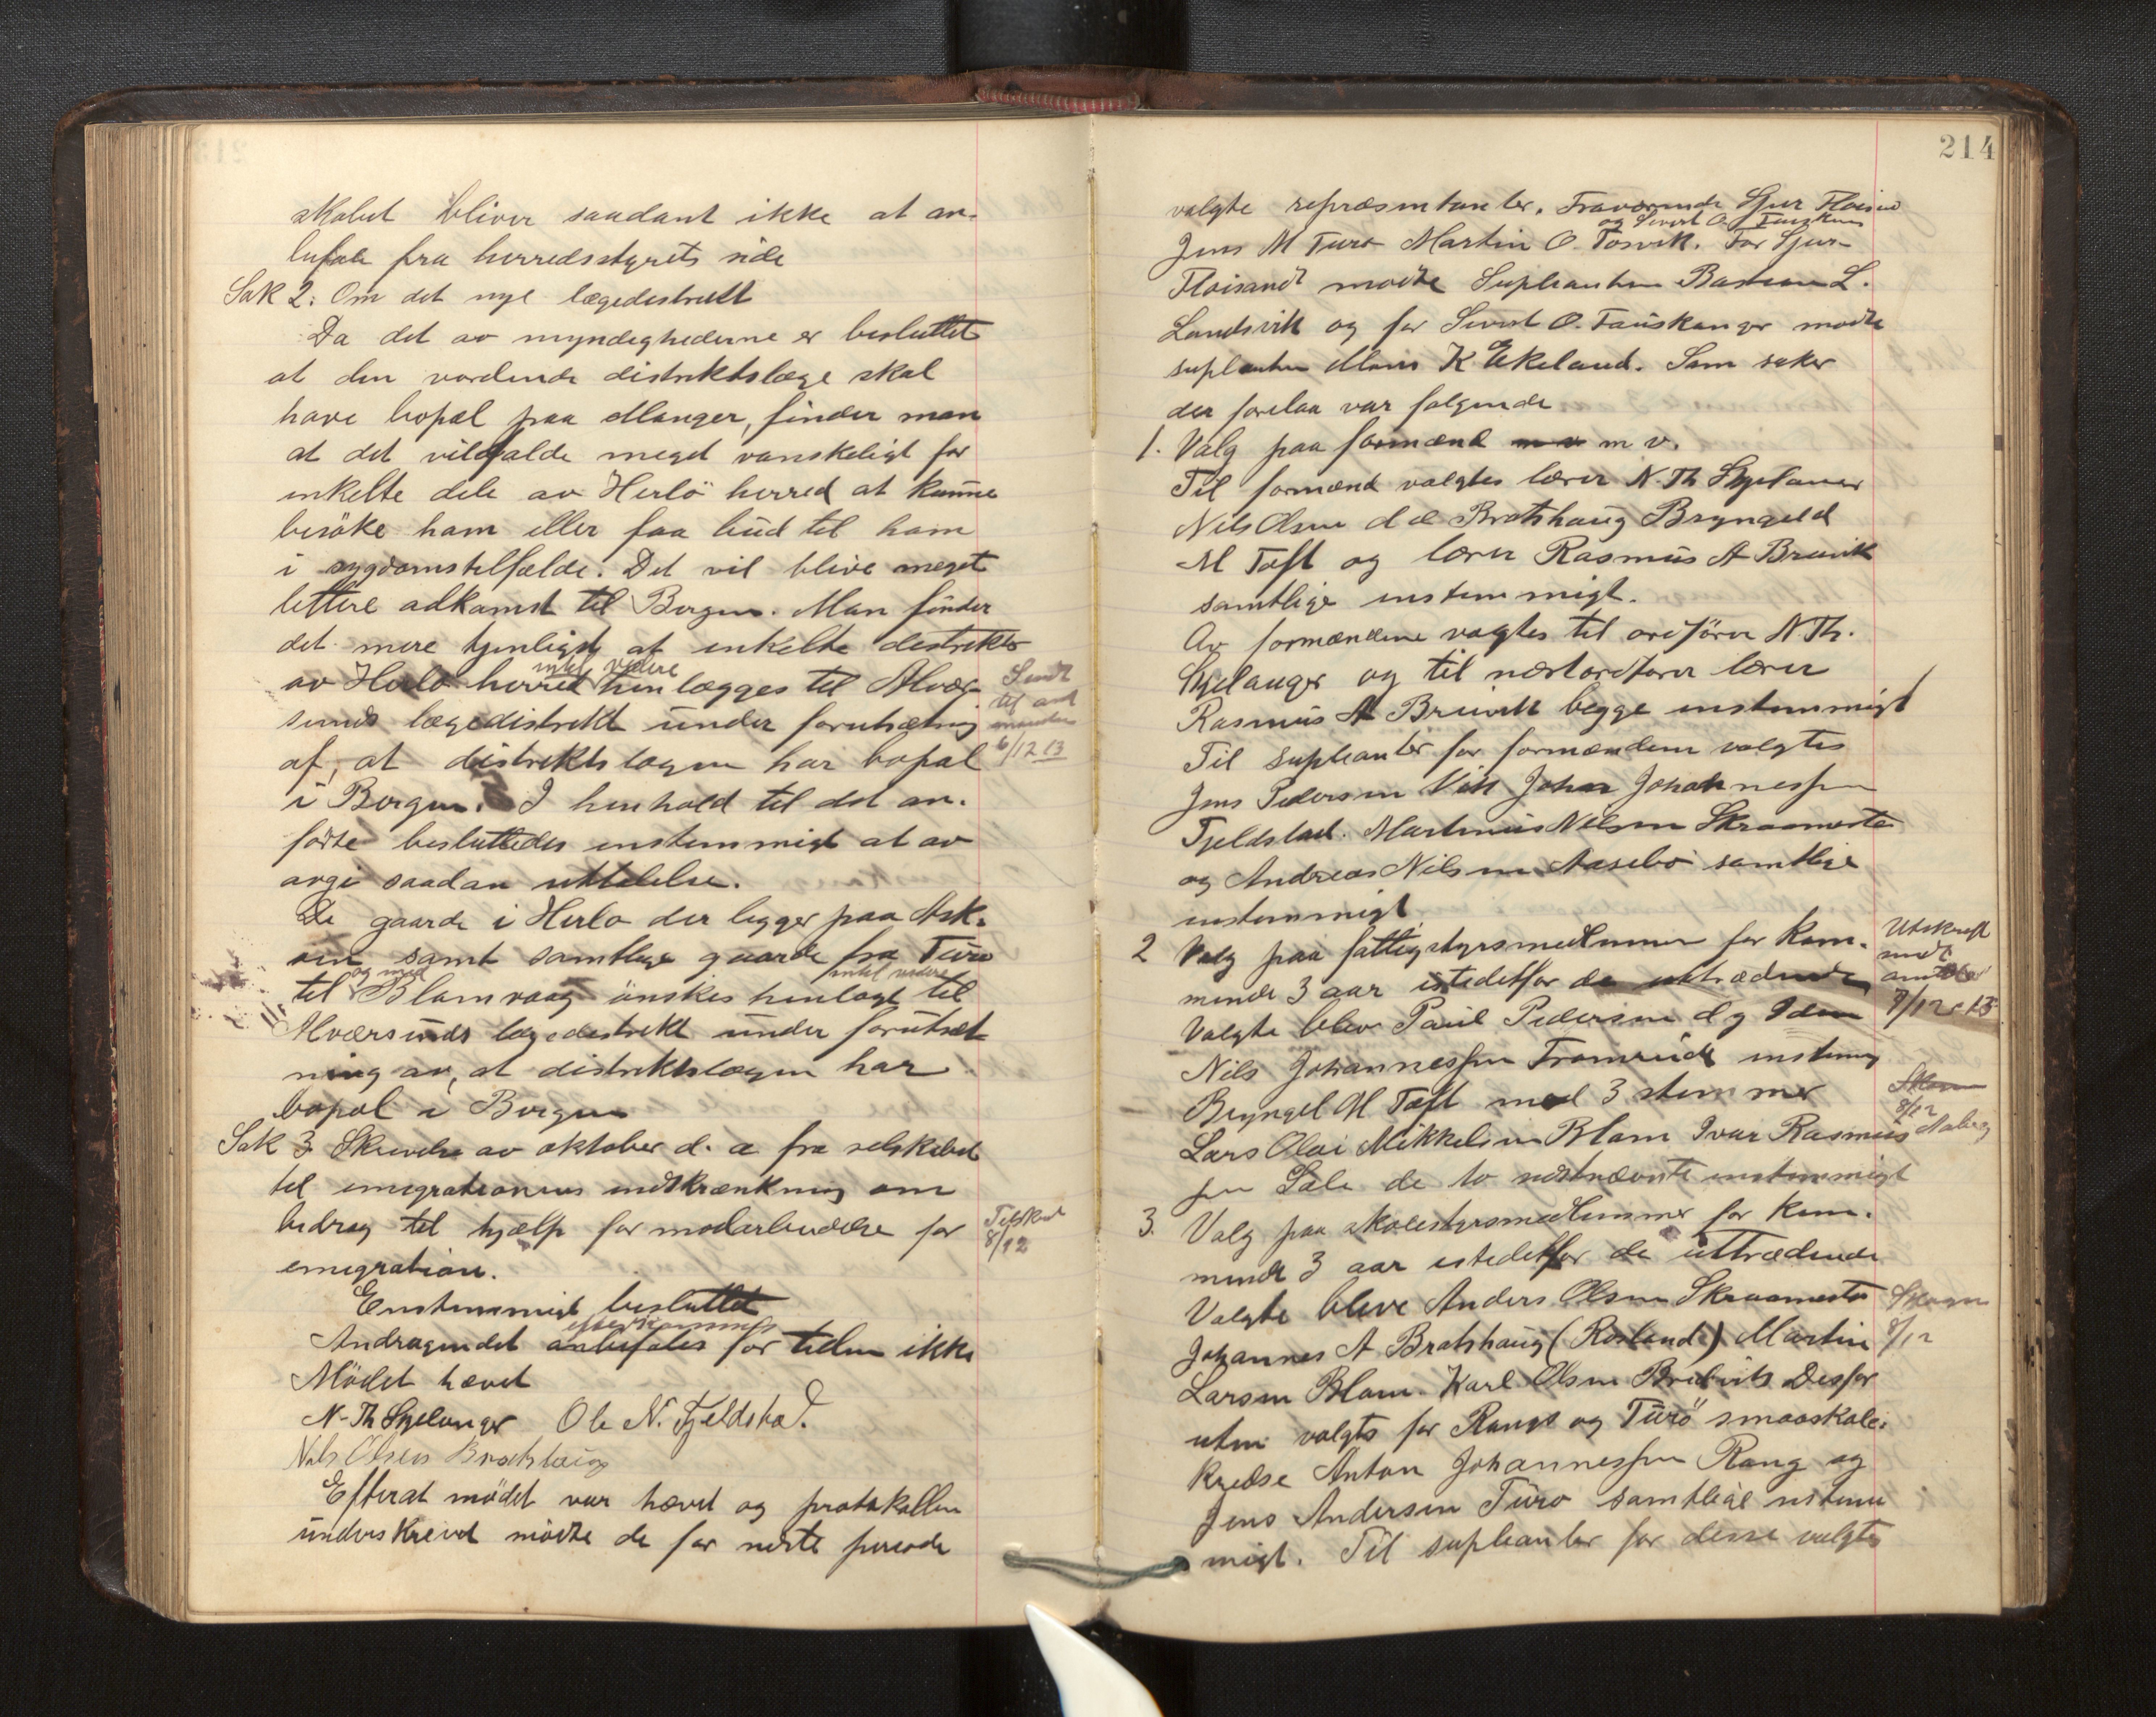 skabet bliver saadant ikke at an-
befale fra herredsstyrets side
Sak 2: Om det nye lægedestrikt
Da det av myndeghederne er besluttet
at den vordende distriktslæge skal
have bopæl paa Manger, finder man
at det vil falde meget vanskeligt for
enkelte dele av Herlö herred at kunne
besöke ham eller faa bud til ham
i sygdomstilfælde. Det vil blive meget
lettere adkomst til Bergen. Man finder
det mere tjenligst at enkelte destrikter
intil videre
av Herlö herred henlægges til Alvær-
sunds lægedistrikt under forutsætning
af, at distriktslægen har bopæl
i Bergen. I henhold til det an-
förte besluttedes enstemmigt at av
avgi saadan uttalelse.
De gaarde i Herlö der ligger paa Ask-
öen samt samtlige gaarde fra Turö
og med intil videre
til Blomvaag önskes henlagt til
Alværsunds lægedestrikt under forutsæt
ning av, at distriktslægen har
bopæl i Bergen
Sendt
til amt
manden
6/12 13
Sak 3 Skrivelse av oktober d. a fra selskabet
til emigrationens indskrænkning om
bidrag til hjælp for modarbeidelse for
emigration.
8/12
Enstemmigt besluttet
efterkommes
Andragendet anbefales for tiden ikke
Mödet hævet
N. Th Skjelanger Ole N. Fjeldstad.
Nils Olsen Bratshaug
Efterat mödet var hævet og protokollen
underskrevet mödte de for neste periode
214
valgte repræsentanter. Fraværende Sjur Floisand
og Sivert O. Tauskanger
Jens M Turö Martin O. Tosvik. For Sjur
Floisand mödte Supleanten Bastian L.
Landsvik og for Sivert O. Tauskanger mödte
suplanten Mons K Ekeland. Som saker
der forelaa var følgende
1. Valg paa formænd m v m v.
Til formænd valgtes lærer N. Th Skjelanger
Nils Olsen d æ Bratshaug Bryngeld
M Toft og lærer Rasmus A Breivik
samtlige enstemmigt.
Av formændene valgtes til ordförer N. Th.
Skjelanger og til næstordförer lærer
Rasmus A Breivik begge enstemmigt
Til supleanter for formændene valgtes
Jens Pedersen Vik Johan Johannessen
Fjeldstad. Martinus Nilsen Skraamestö
og Andreas Nilsen Aasebö samtlige
enstemmigt
2 Valg paa fattigstyrsmedlemmer for kom-
mende 3 aar istedetfor de uttrædende
Valgte blev Paul Pedersen d y
Nils Johannessen Fromreide enstemmig
Bryngel M Toft med 3 stemmer
Lars Olai Mikkelsen Blom Ivar Rasmus
sen Sæle de to sidstnævnte enstemmigt
Utskrift
sendt
amtet
8/12 13
8/12
3. Valg paa skolestyrsmedlemmer for kom-
mende 3 aar istedetfor de uttrædende
Valgte bleve Anders Olsen Skraamestö
Johannes A Bratshaug (Rosland) Martin
Larsen Blom. Karl Olsen Breivik Desfor
uten valgtes for Rangs og Turö smaaskole-
kredse Anton Johannessen Rong og
Jens Andersen Turö samtlige enstem
migt. Til supleanter for desse valgtes
8/12